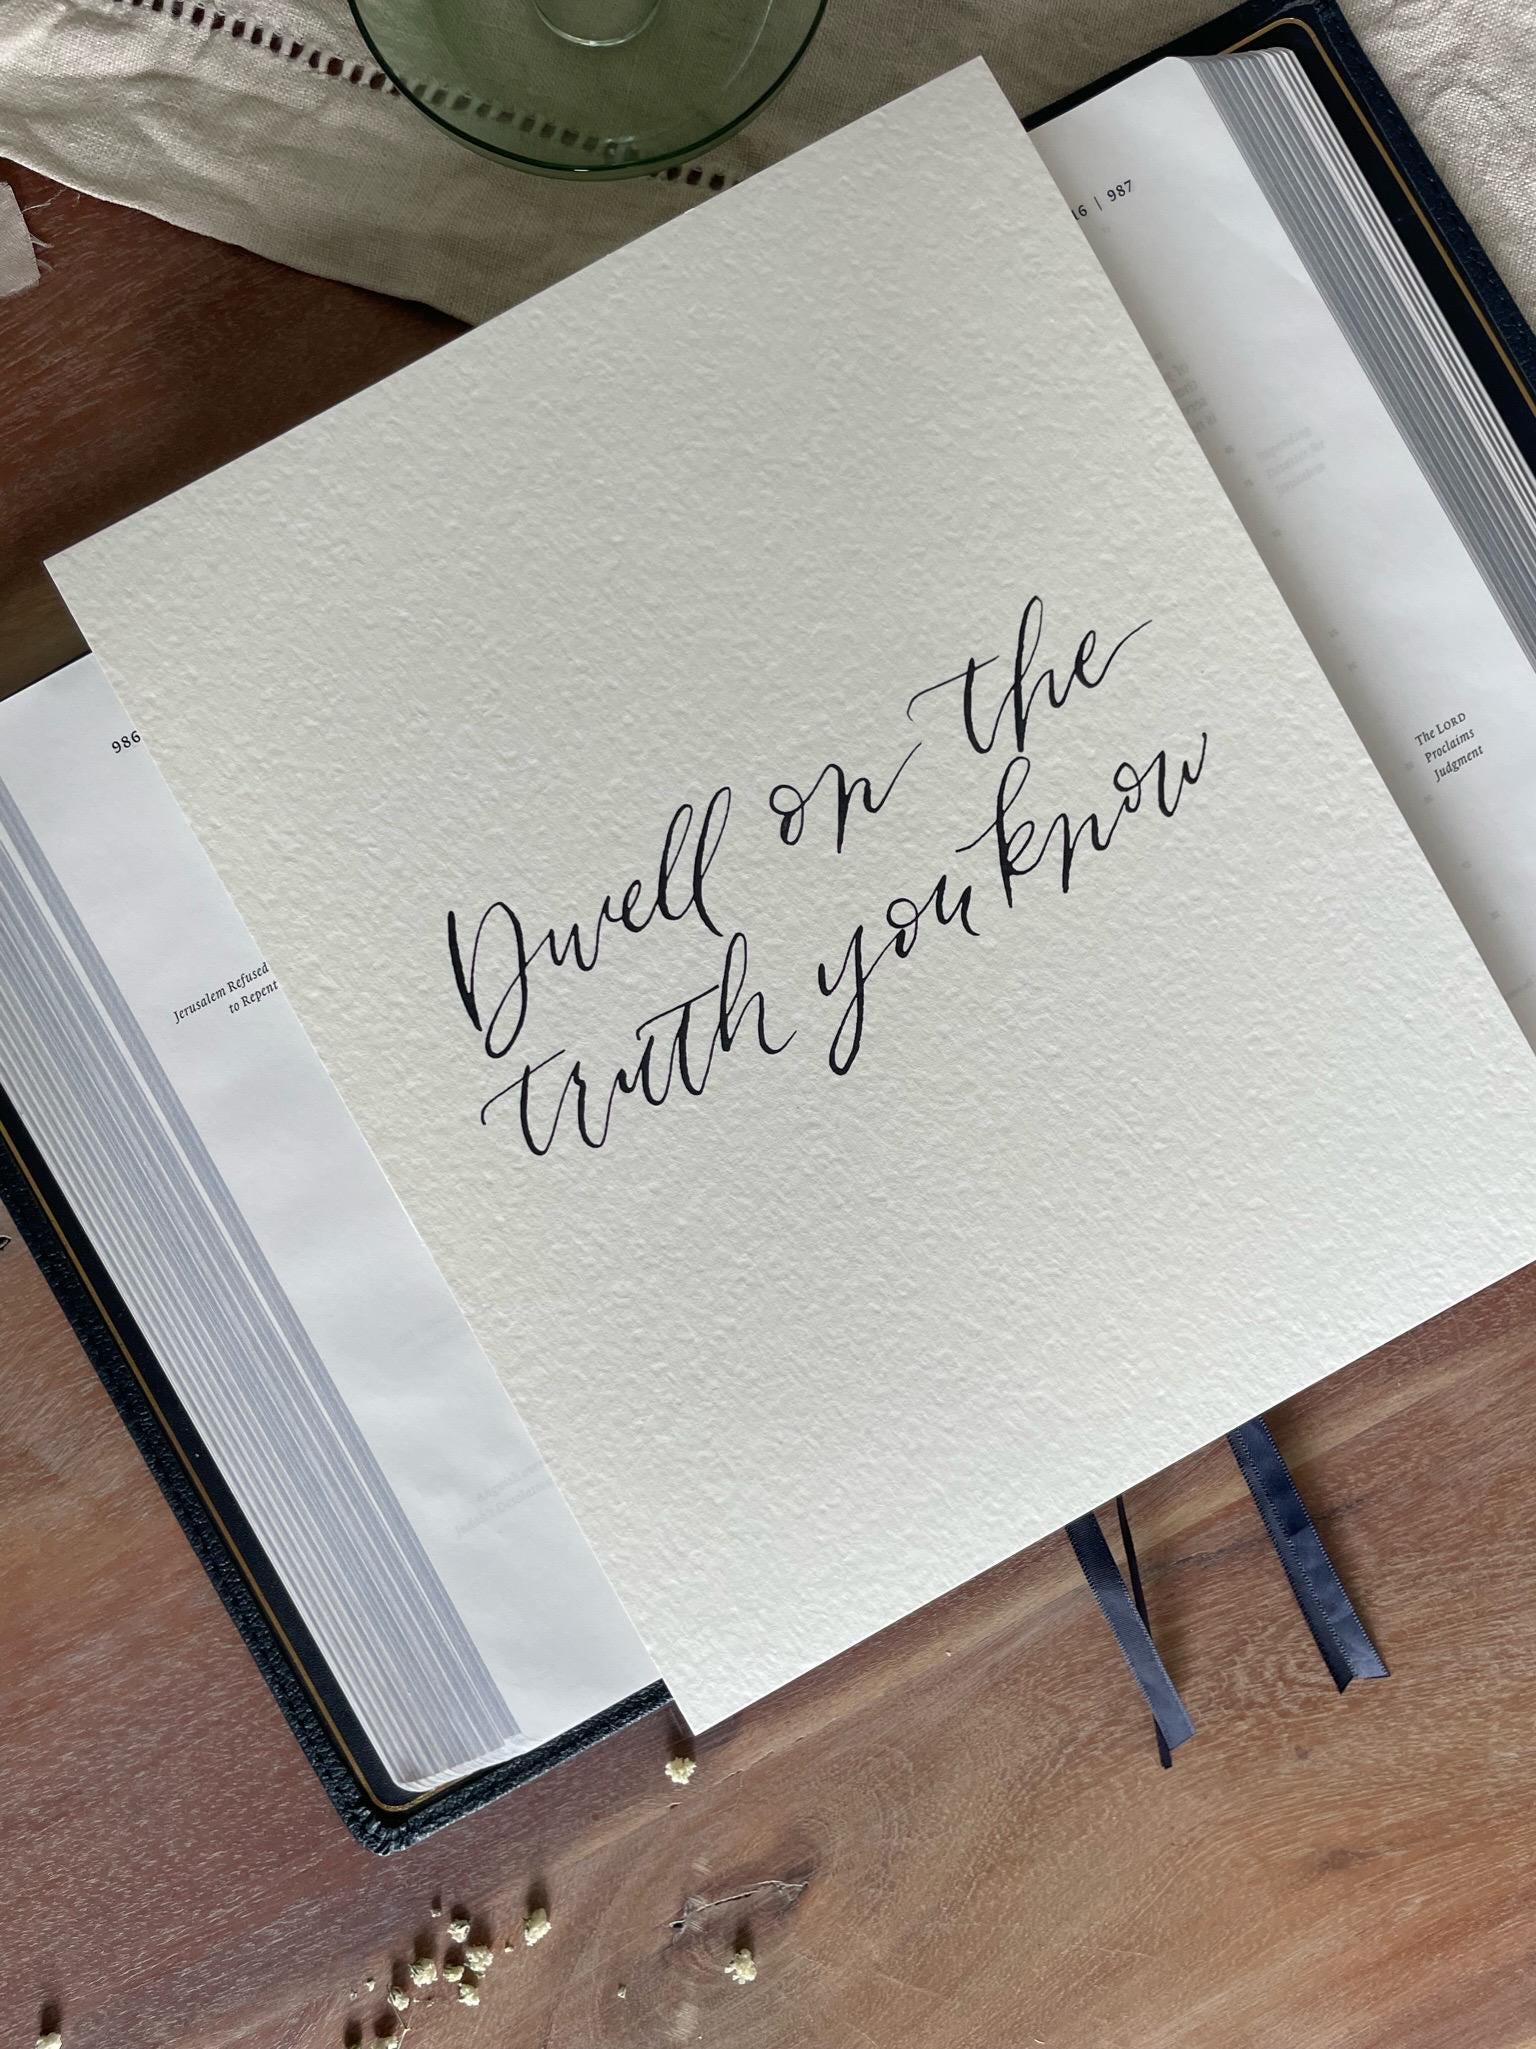 986
Jerusalem Refused
to Repent
Dwell on the
truth you know
16 | 987
The LORD
Proclaims
Judgment